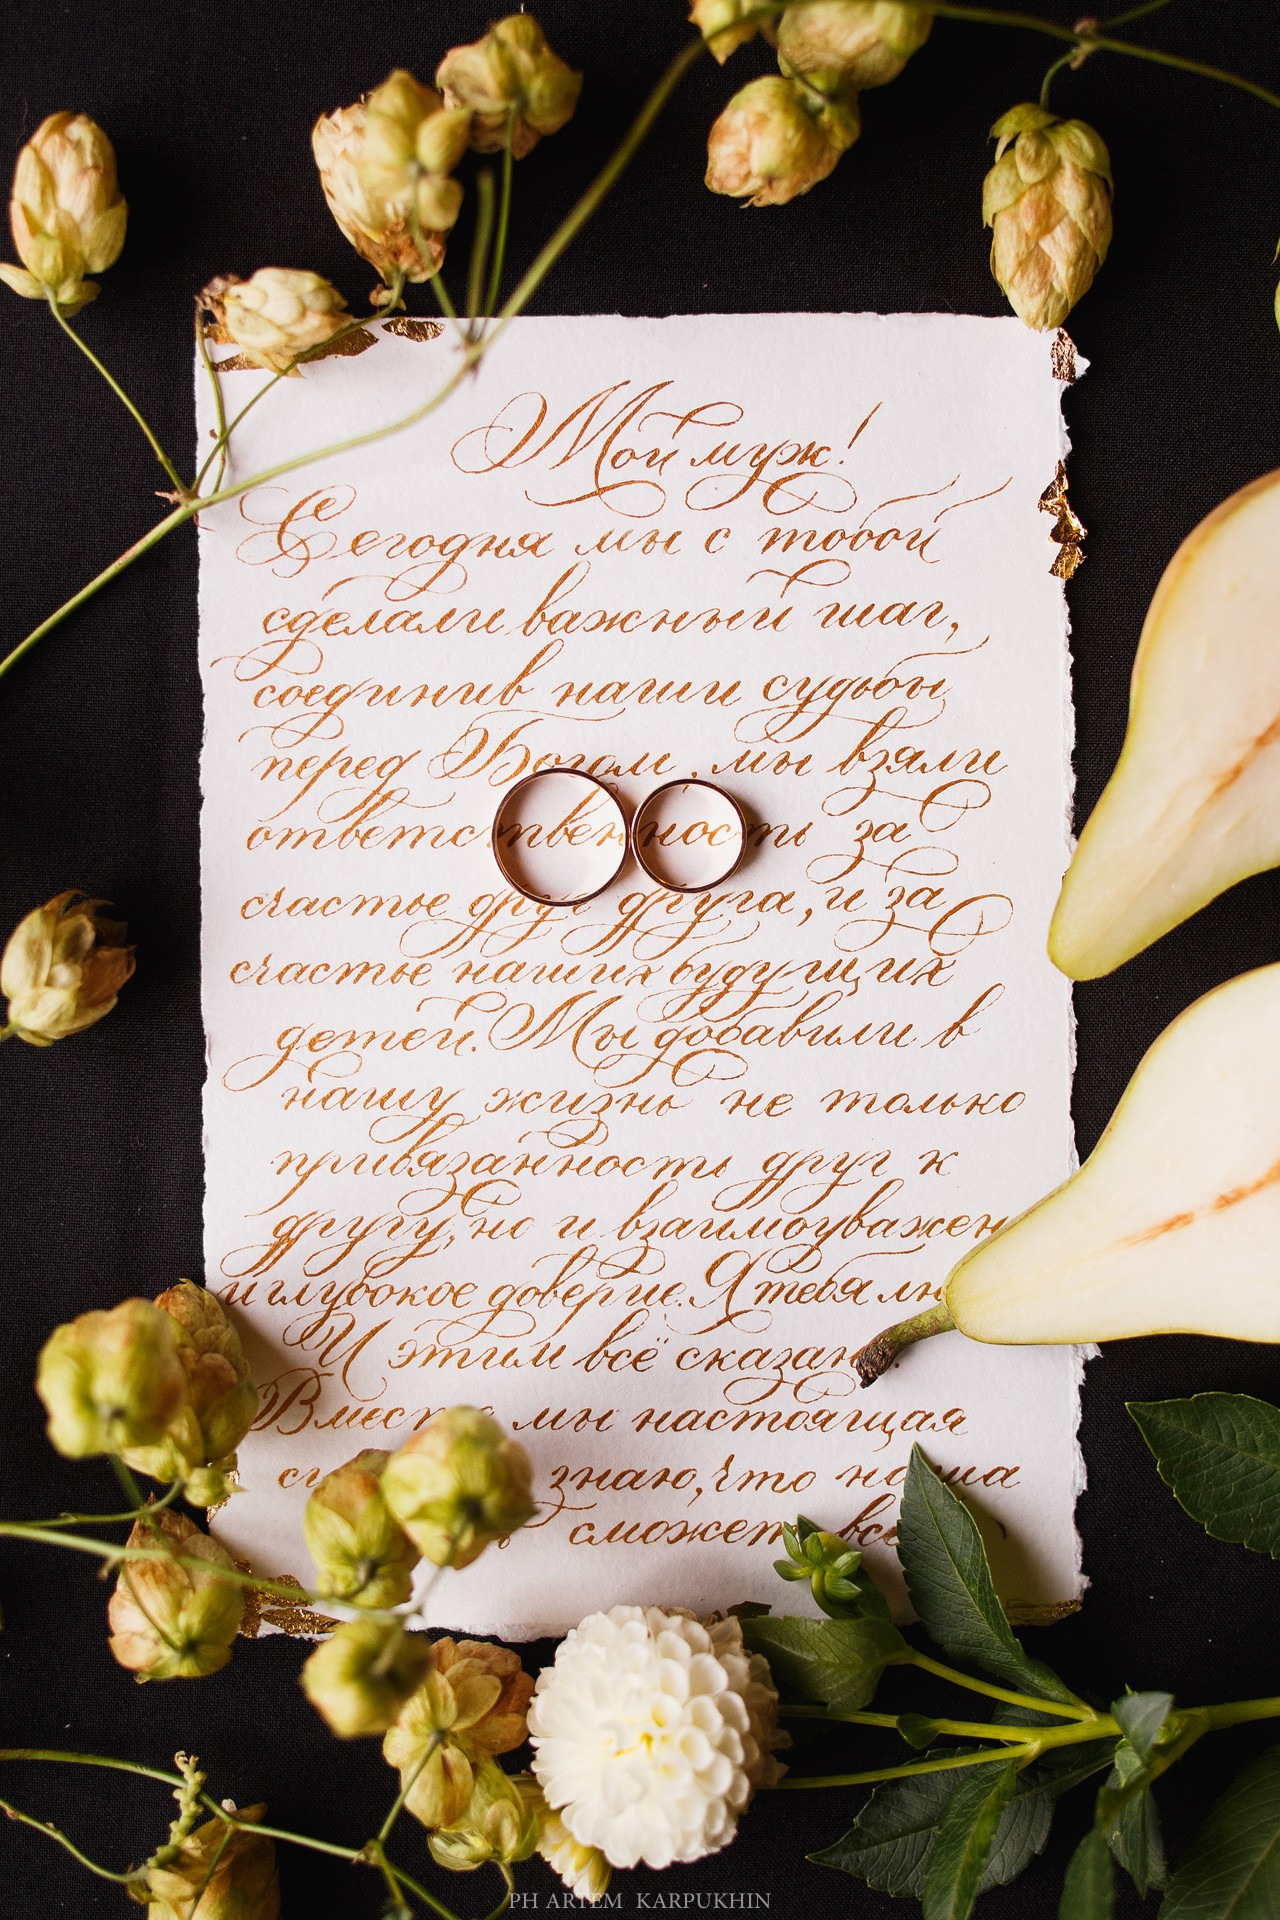 Мой муж!
Сегодня мы с тобой
сделали важный шаг,
соединив наши судьбы
перед Богом, мы взяли
ответственность за
счастье друг друга, и за
счастье наших будущих
детей. Мы добавили в
нашу жизнь не только
привязанность друг к
другу, но и взаимоуважен
и глубокое доверие. Я тебя лю
И этим всё сказано.
Вместе мы настоящая
знаю, что наша
сможет всё
PH ARTEM KARPUKHIN